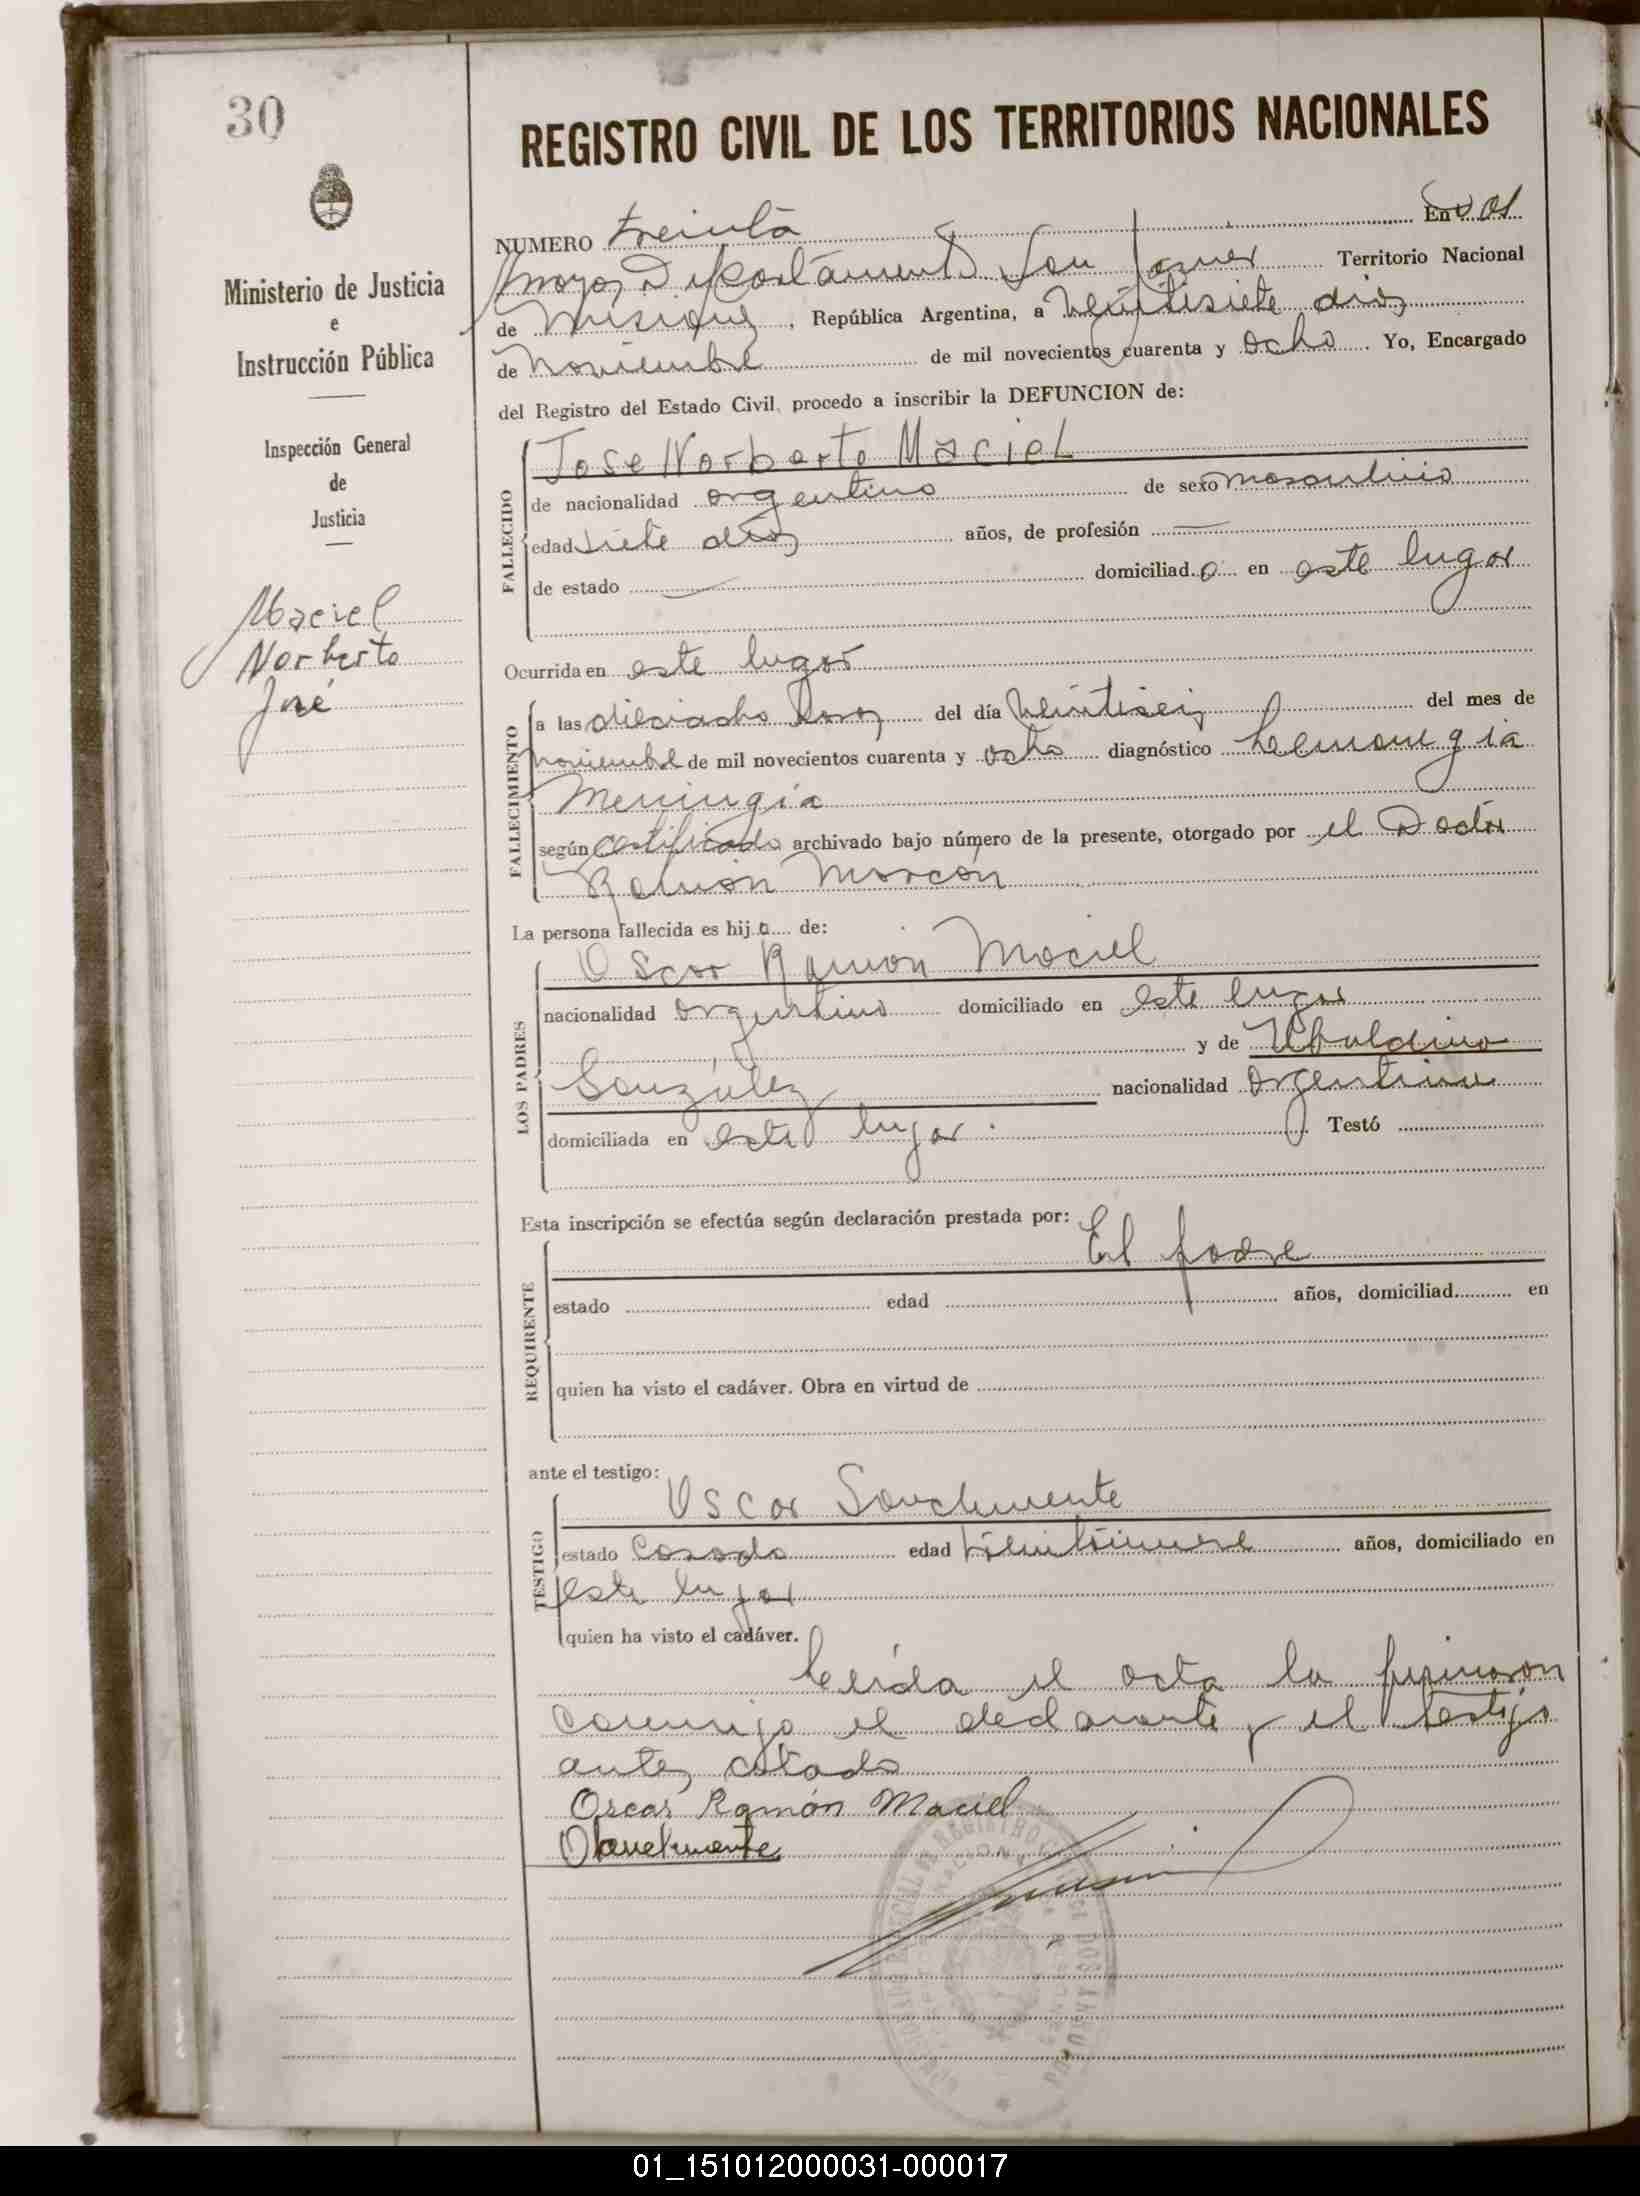 30
REGISTRO CIVIL DE LOS TERRITORIOS NACIONALES
NUMERO treinta En Dos
Arroyos, Departamento San Javier Territorio Nacional
de Misiones, República Argentina, a veintisiete dias
de Noviembre de mil novecientos cuarenta y ocho. Yo, Encargado
del Registro del Estado Civil, procedo a inscribir la DEFUNCION de:
Ministerio de Justicia
e
Instrucción Pública
Inspección General
de
Justicia
Maciel
Norberto
José
FALLECIDO
Jose Norberto Maciel
de nacionalidad argentino de sexo masculino
edad siete dias años, de profesión —
de estado — domiciliado en este lugar
Ocurrida en este lugar
FALLECIMIENTO
a las dieciocho horas del día veintiseis del mes de
noviembre de mil novecientos cuarenta y ocho diagnóstico hemorragia
Meningia
según certificado archivado bajo número de la presente, otorgado por el Doctor
Ramón
La persona fallecida es hijo de:
LOS PADRES
Oscar Ramón Maciel
nacionalidad argentino domiciliado en este lugar
y de Ubaldina
González nacionalidad argentina
domiciliada en este lugar. Testó
Esta inscripción se efectúa según declaración prestada por:
REQUIRENTE
El padre
estado edad años, domiciliad en
quien ha visto el cadáver. Obra en virtud de
ante el testigo:
TESTIGO
Oscar
estado Casado edad veintinueve años, domiciliado en
este lugar
quien ha visto el cadáver.
Leida el acta la firmaron
conmigo el declarante y el testigo
antes citado
Oscar Ramón Maciel
01_151012000031-000017